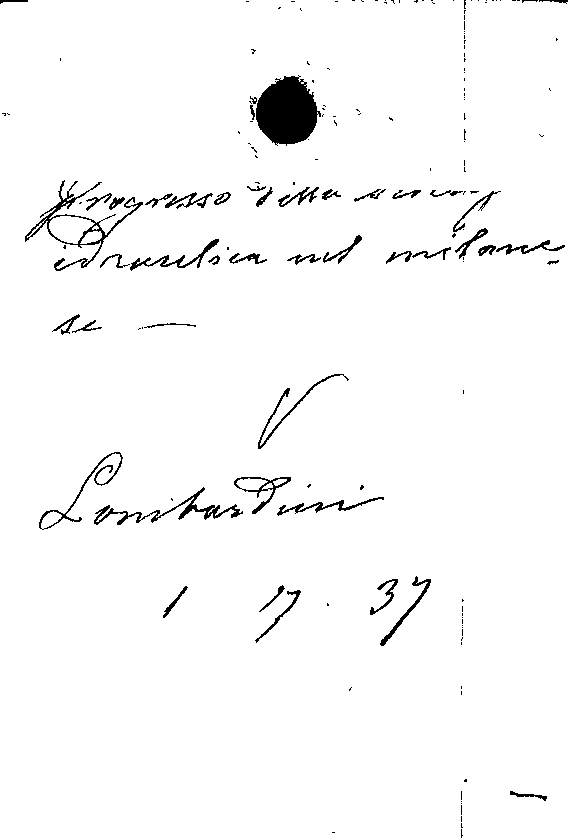 Progresso della scienza
idraulica nel milane-
se —
V
Lombardini
1 17. 37